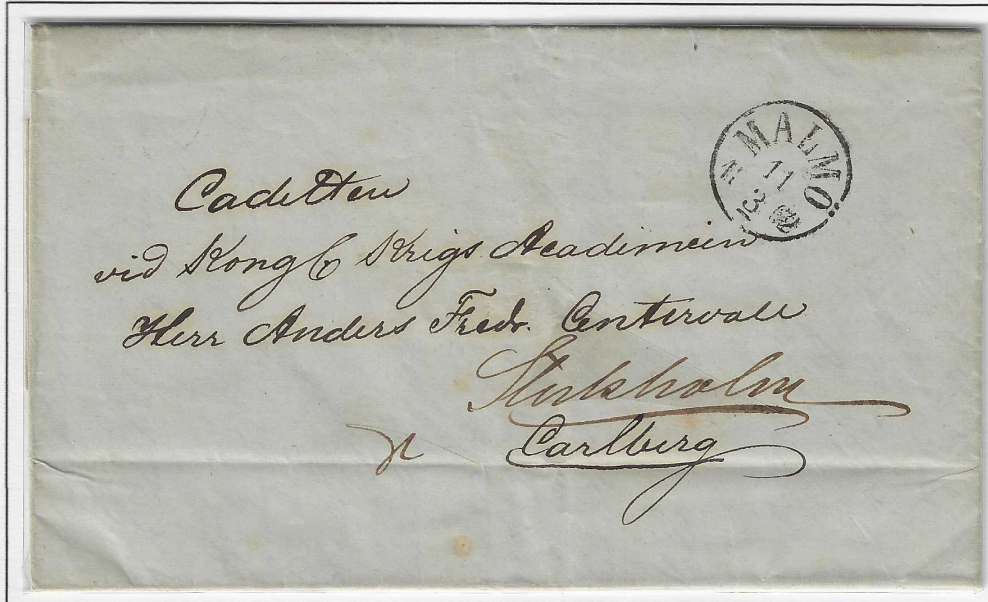 MALMÖ
11
3
Cadetten
vid Kongl Krigs Academien
Herr Anders Fredr. Centervall
Stockholm
Carlberg